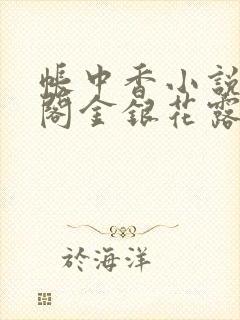 帳中香小說
閣金銀花露
於海洋